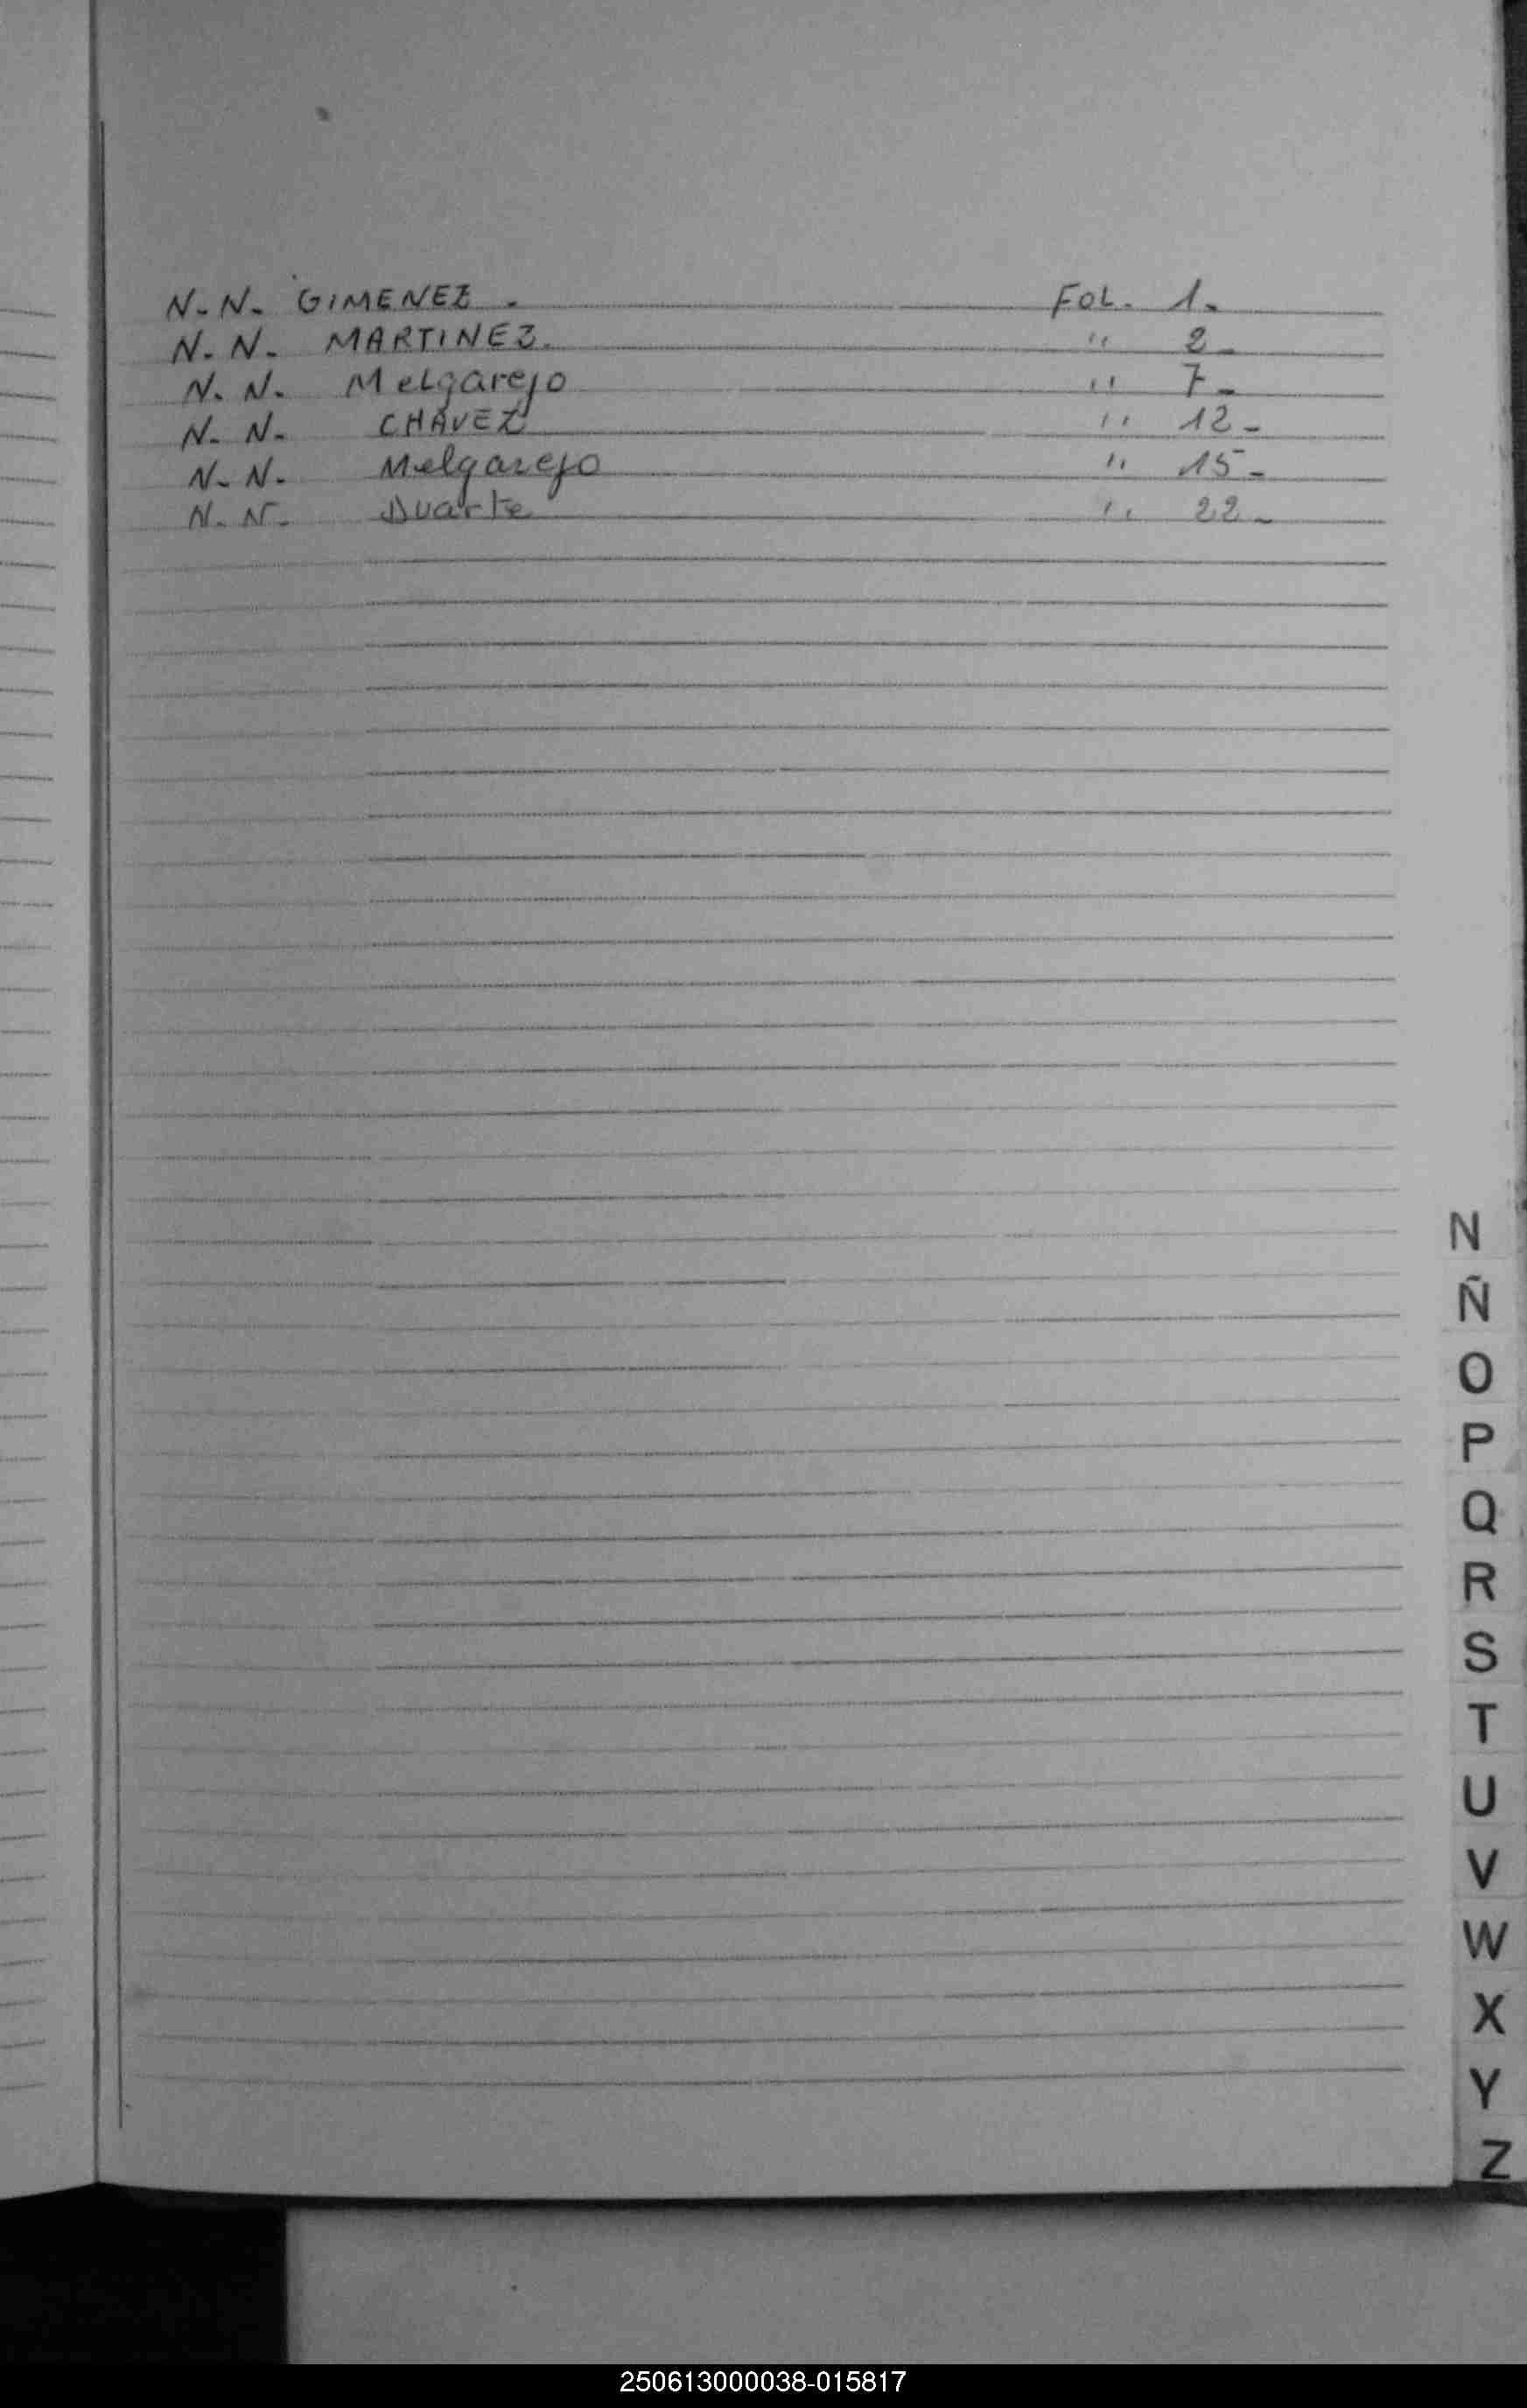 N.N. GIMENEZ. FOL. 1.
N.N. MARTINEZ. " 2-
N.N. Melgarejo " 7-
N.N. CHÁVEZ " 12-
N.N. Melgarejo " 15-
N.N. Duarte " 22-
N
Ñ
O
P
Q
R
S
T
U
V
W
X
Y
Z
250613000038-015817